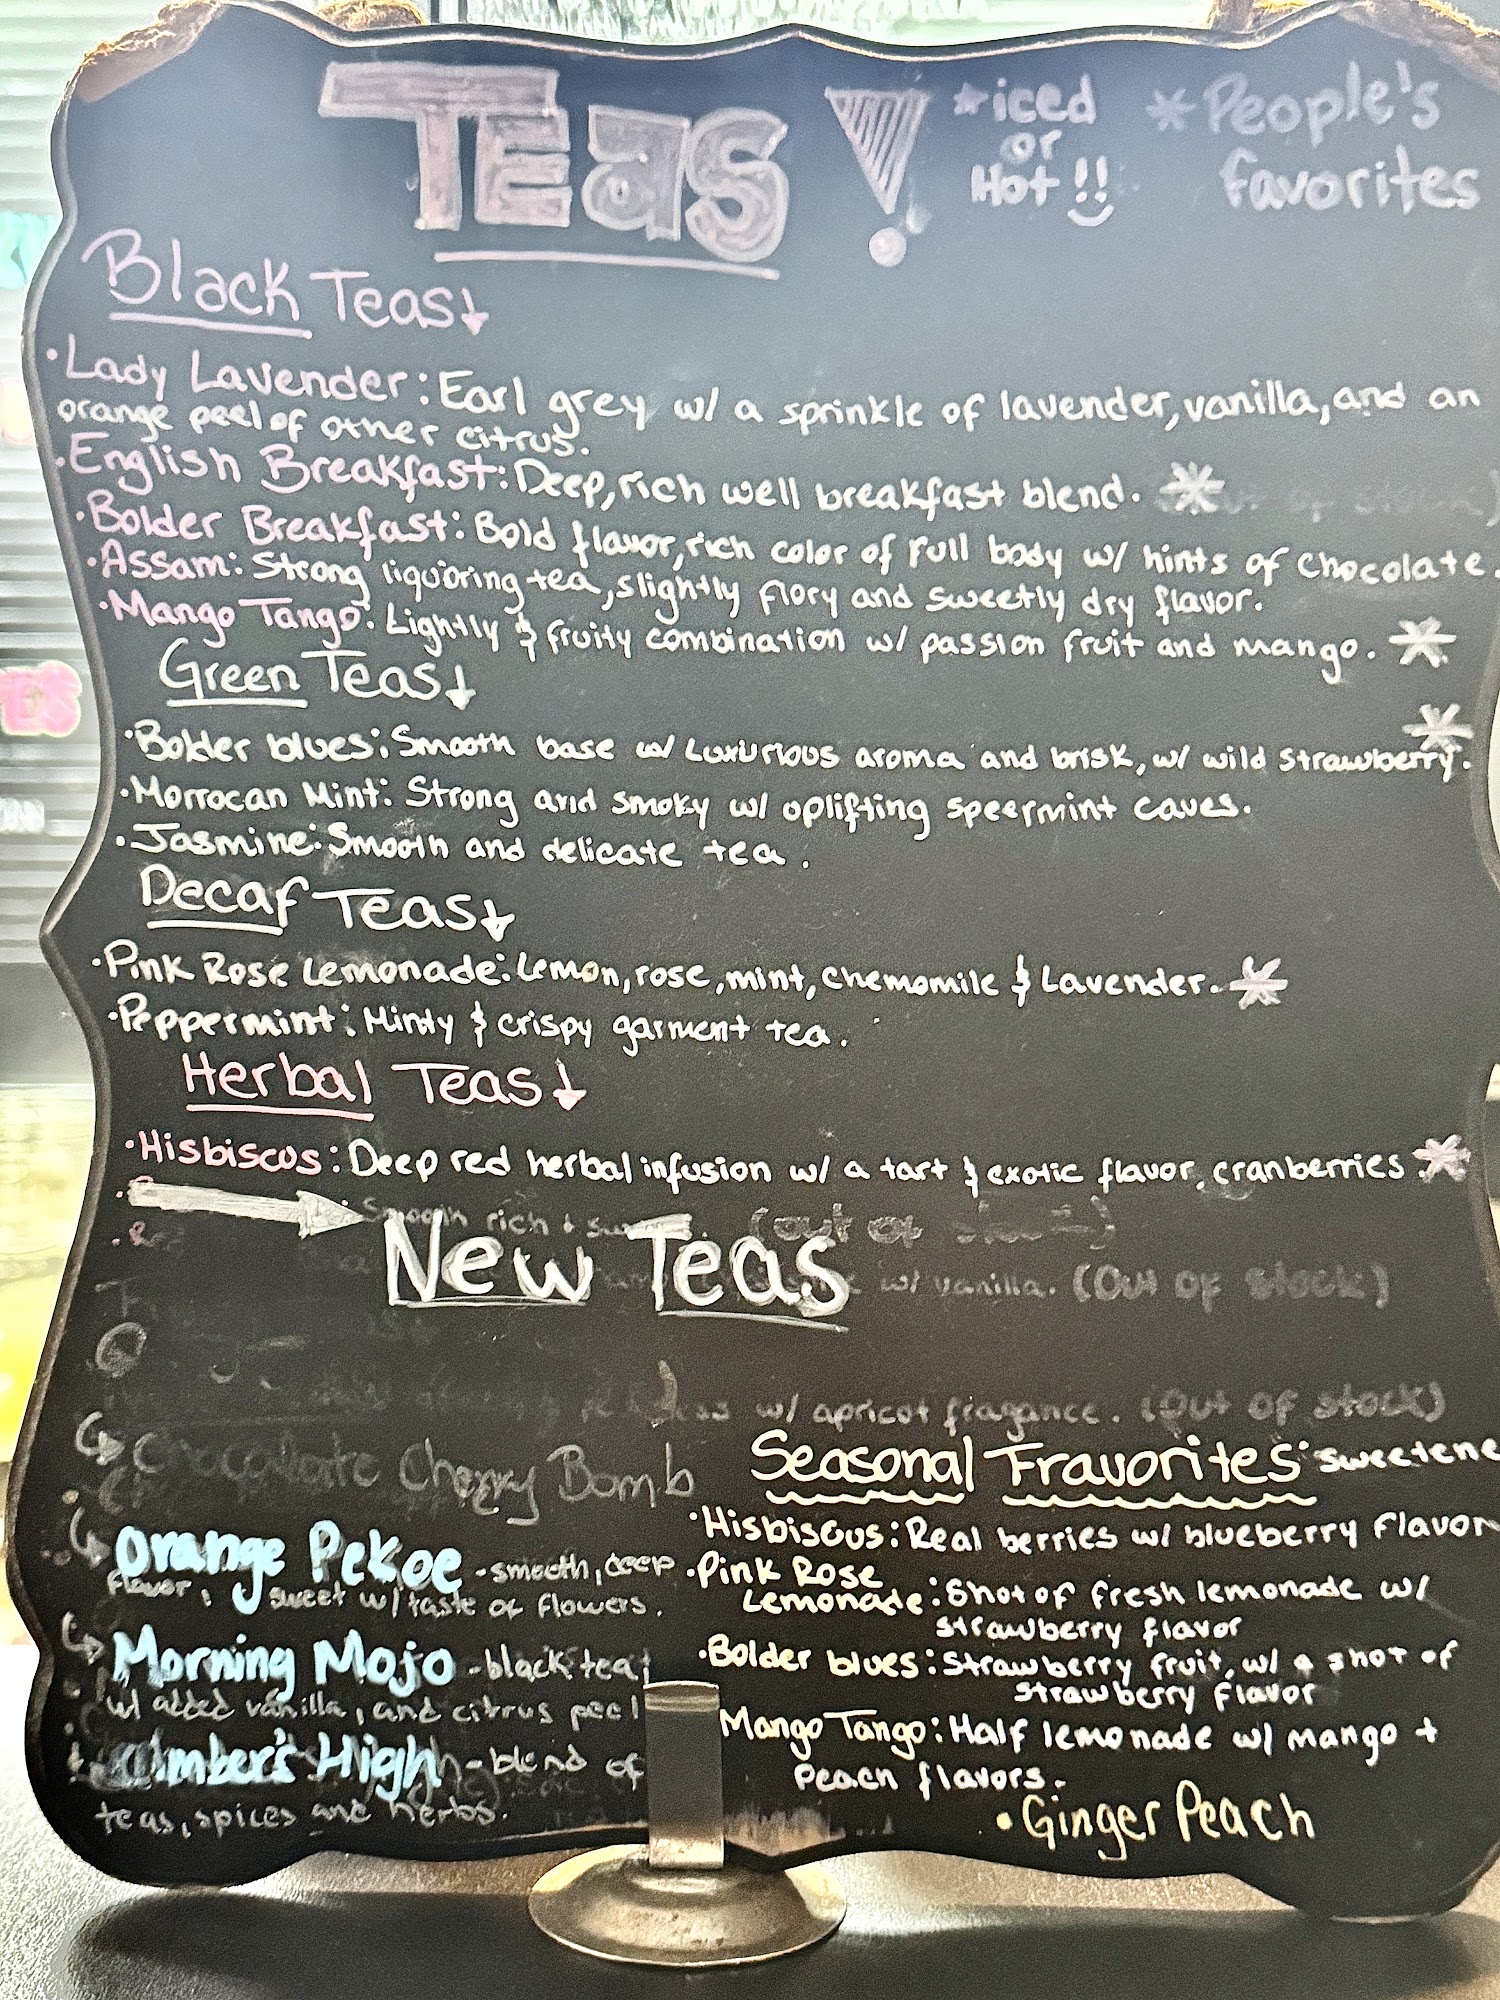 Teas!
*iced
or
Hot!!
* People's
favorites
Black Teas↓
·Lady Lavender: Earl grey w/ a sprinkle of lavender, vanilla, and an
orange peel of other citrus.
·English Breakfast: Deep, rich well breakfast blend. *
·Bolder Breakfast: Bold flavor, rich color of full body w/ hints of chocolate.
·Assam: Strong liquoring tea, slightly flory and sweetly dry flavor.
·Mango Tango: Lightly & fruity combination w/ passion fruit and mango. *
Green Teas↓
·Bolder blues: Smooth base w/ Luxurious aroma and brisk, w/ wild strawberry. *
·Morrocan Mint: Strong and smoky w/ oplifting speermint caves.
·Jasmine: Smooth and delicate tea.
Decaf Teas↓
·Pink Rose Lemonade: Lemon, rose, mint, chemomile & Lavender. *
·Peppermint: Minty & crispy garment tea.
Herbal Teas↓
·Hisbiscus: Deep red herbal infusion w/ a tart & exotic flavor, cranberries. *
Smooth rich (out of
New Teas
w/ vanilla. (Out of stock)
w/ apricot fragance. (Out of stock)
Chocolate Cherry Bomb
Orange Pekoe - smooth, deep
flavor, sweet w/ taste of flowers.
Morning Mojo - black tea
w/ added vanilla, and citrus peel
Amber's High - blend of
teas, spices and herbs.
Seasonal Fravorites: sweetene
·Hisbiscus: Real berries w/ blueberry flavor
·Pink Rose
Lemonade: Shot of fresh lemonade w/
strawberry flavor
·Bolder blues: Strawberry fruit, w/ a shot of
strawberry flavor
Mango Tango: Half lemonade w/ mango +
Peach flavors.
·Ginger Peach